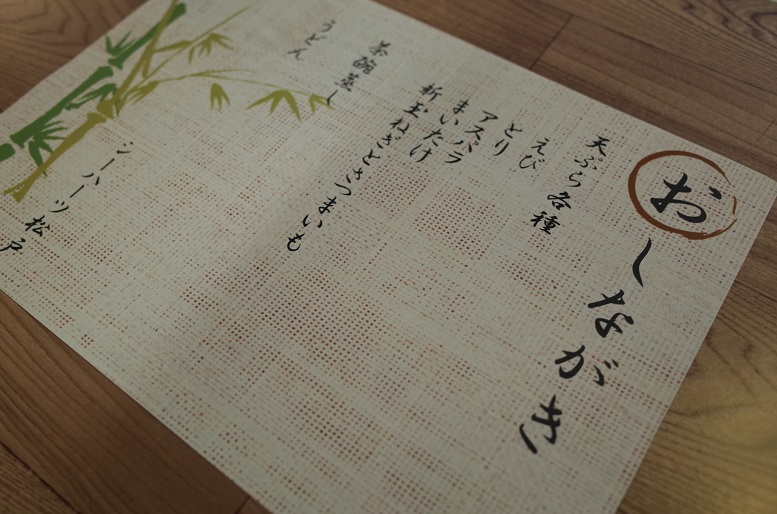 おしながき
天ぷら各種
えび
とり
アスパラ
まいたけ
新玉ねぎとさつまいも
茶碗蒸し
うどん
シーハーツ松戸